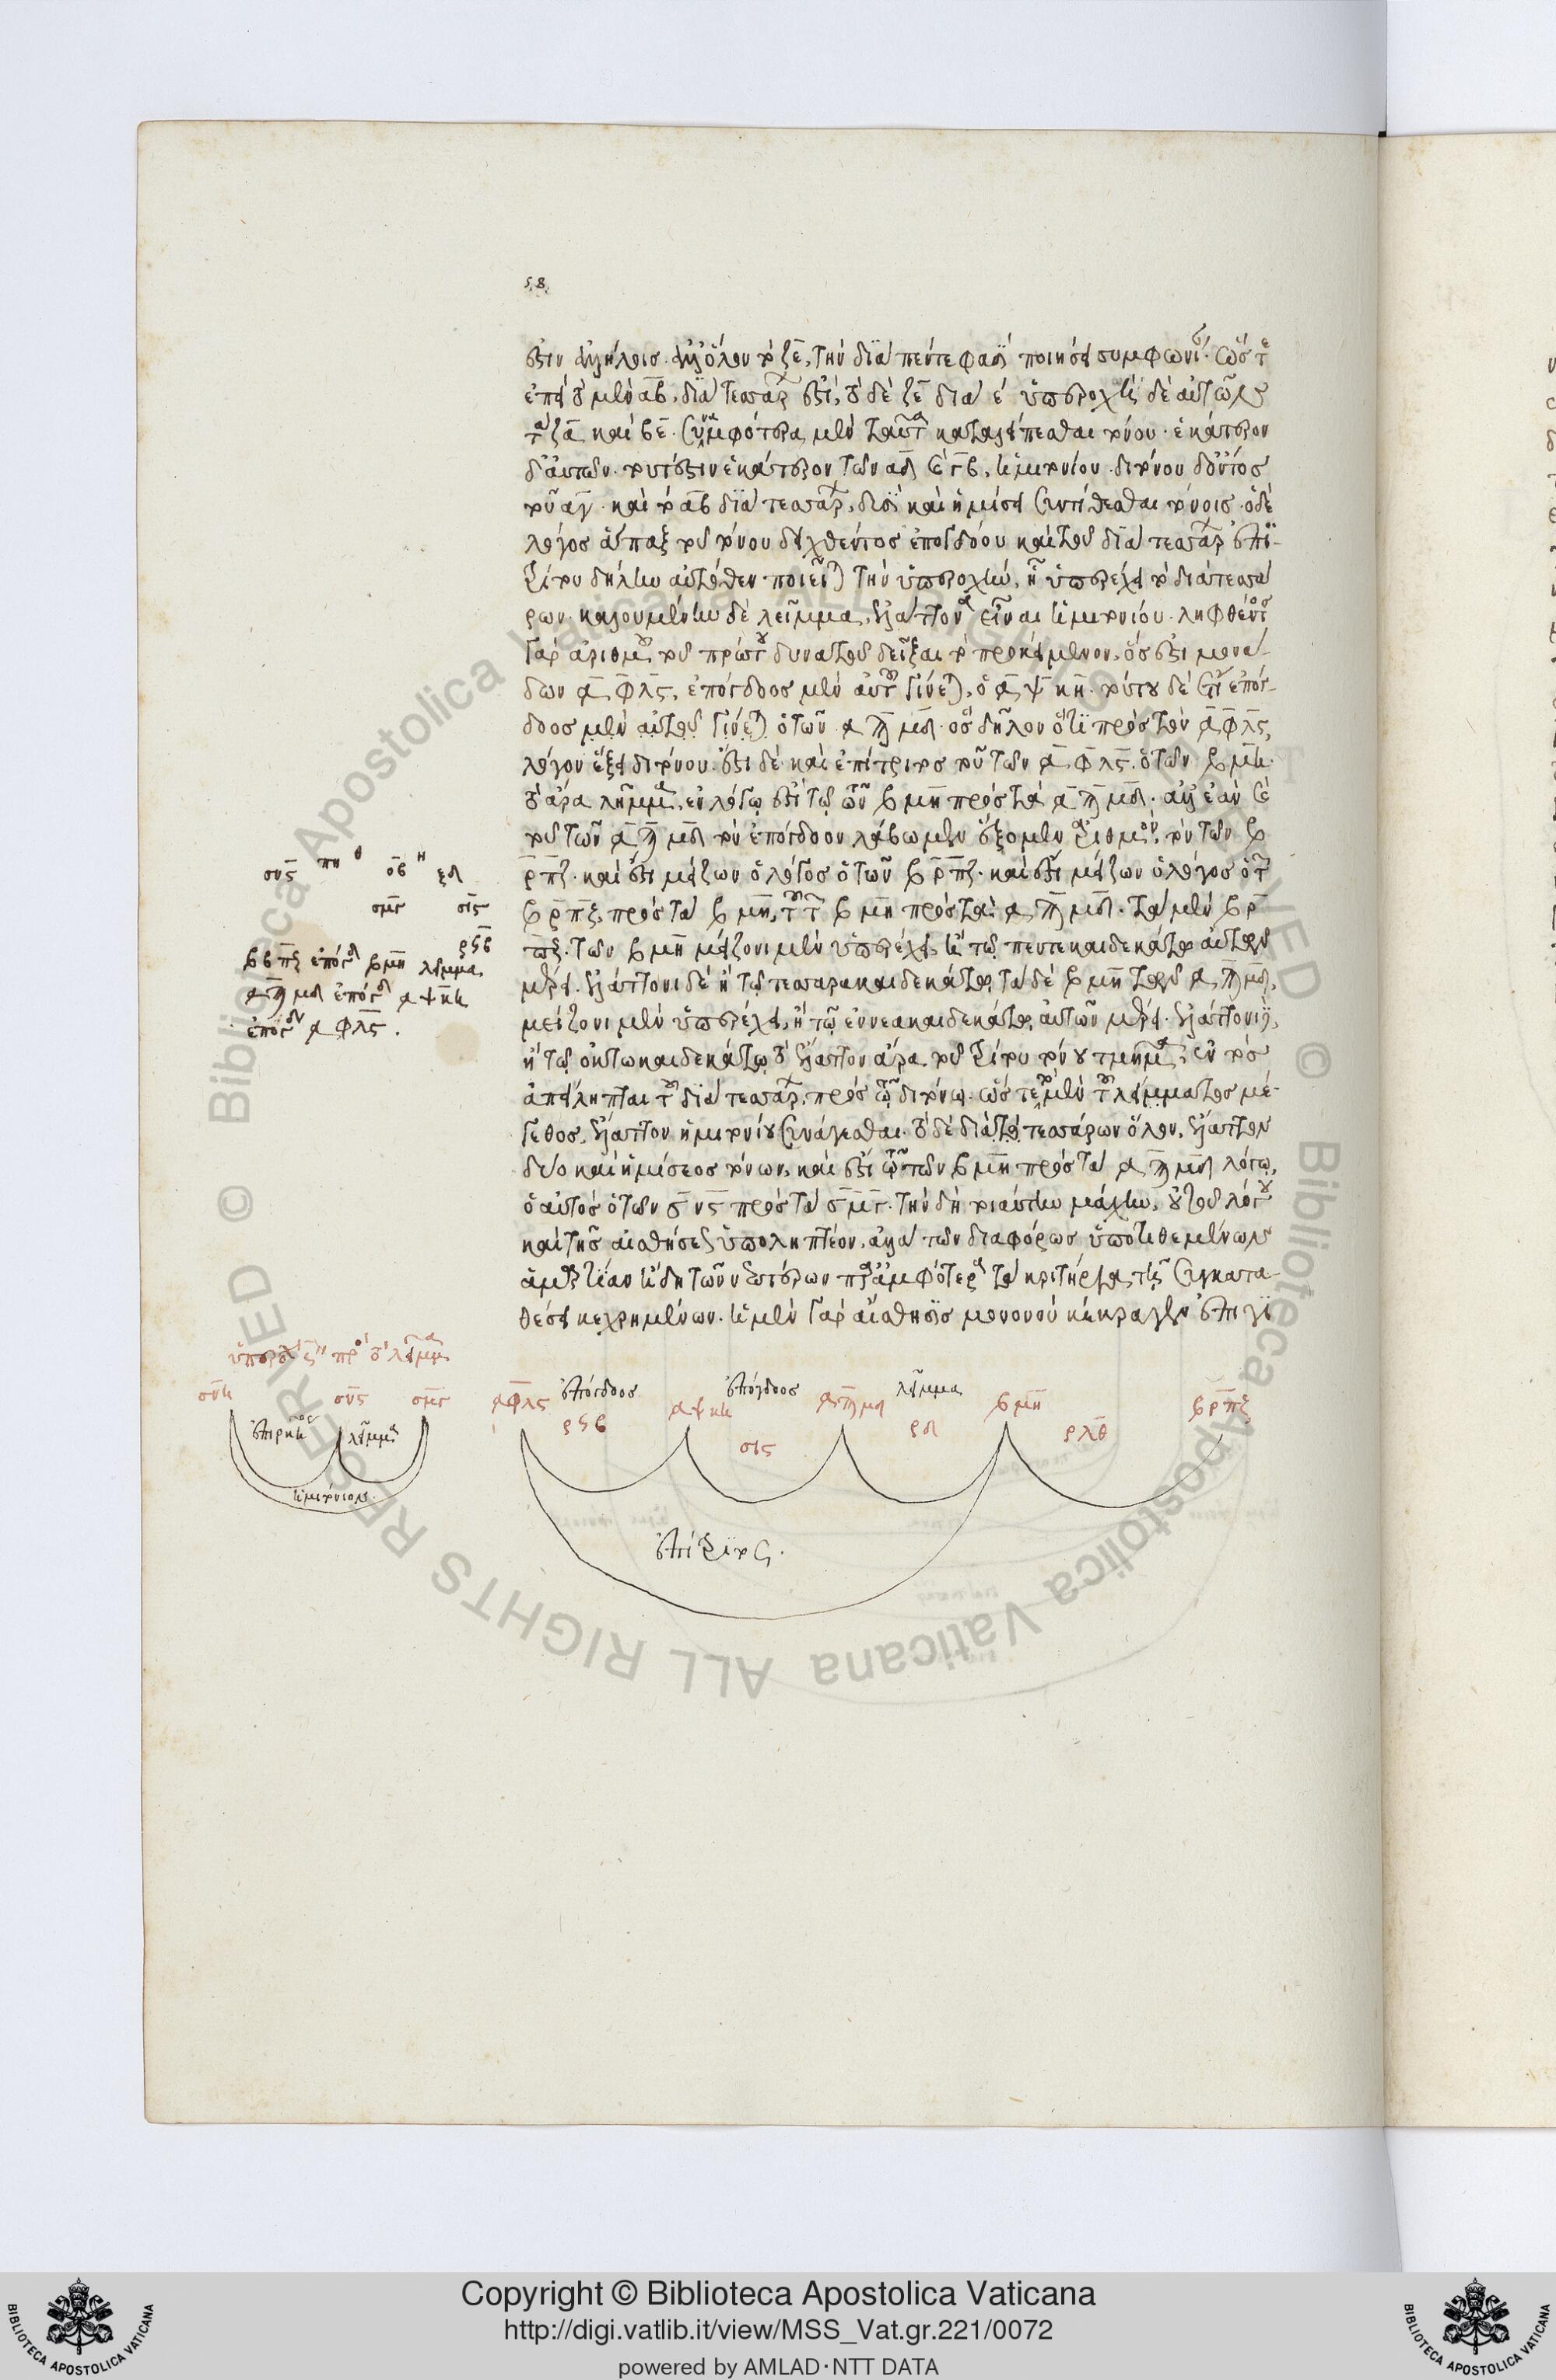 58
ἐστιν ἀλλήλοις· ἀλλ' ὅλον τὸ ζε, τὴν διὰ πέντε φασὶ ποιήσει συμφωνίαν· ὥστε
ἐπεὶ τὸ μὲν αβ, διὰ τεσσάρ ἐστὶ, τὸ δὲ ζε διὰ ε ὑπεροχὴ δὲ αὐτῶν
τὰ ζα καὶ βε· συναμφότερα μὲν ταῦτα καταλείπεσθαι τόνου· ἑκάτερον
δ' αὐτῶν· τουτέστιν ἑκάτερον τῶν αδ καὶ γβ, ἡμιτονίου· διτόνου δ' ὄντος
τοῦ αγ· καὶ τὸ αβ διὰ τεσσάρ, δυσὶ καὶ ἡμίσει συντίθεσθαι τόνοις· ὁ δὲ
λόγος ἅπαξ τοῦ τόνου δειχθέντος ἐπογδόου καὶ τοῦ διὰ τεσσάρ ἐπι-
τρίτου δήλην αὐτόθεν ποιεῖται τὴν ὑπεροχὴν, ᾗ ὑπερέχει τὸ διὰ τεσσά
ρων· καλουμένην δὲ λεῖμμα, ἐλάττονα εἶναι ἡμιτονίου· ληφθέντος
γὰρ ἀριθμοῦ τοῦ πρώτου δυνατοῦ δεῖξαι τὸ προκείμενον, ὅς ἐστι μονά-
δων ͵α φ λς, ἐπόγδοος μὲν αὐτοῦ γίνεται, ὁ ͵α ψ κη· τούτου δὲ ἐπόγ-
δοος μὲν αὐτοῦ γίνεται ὁ τῶν ͵α ϡ μδ· ὃς δῆλον ὅτι πρὸς τὸν ͵α φ λς,
λόγον ἕξει διτόνου· ἔστι δὲ καὶ ἐπίτριτος τοῦ τῶν ͵α φ λς ὁ τῶν ͵β μη·
τὸ ἄρα λῆμμα, ἐν λόγῳ ἐστὶ τῷ τῶν ͵β μη πρὸς τὰ ͵α ϡ μδ· ἀλλ' ἐὰν καὶ
τοῦ τῶν ͵α ϡ μδ τὸν ἐπόγδοον λάβωμεν ἕξομεν ἀριθμὸν, τὸν τῶν ͵β
ρ πζ· καὶ ἔστι μείζων ὁ λόγος ὁ τῶν ͵β ρ πζ· καὶ ἔστι μείζων ὁ λόγος ὁ τ
͵β ρ πζ πρὸς τὰ ͵β μη, τοῦ τ ͵β μη πρὸς τὰ ͵α ϡ μδ· τὰ μὲν ͵β ρ
πζ· τῶν ͵β μη μείζονι μὲν ὑπερέχει, ἢ τῷ πεντεκαιδεκάτῳ αὐτῶν
μέρει· ἐλάττονι δὲ ἢ τῷ τεσσαρακαιδεκάτῳ τὰ δὲ ͵β μη τῶν ͵α ϡ μδ,
μείζονι μὲν ὑπερέχει, ἢ τῷ ἐννεακαιδεκάτῳ αὐτῶν μέρει· ἐλάττονι δὲ,
ἢ τῷ ὀκτωκαιδεκάτῳ τὸ ἔλαττον ἄρα τοῦ τρίτου τόνου τμῆμα, ἐν τος
ἀπείληπται τοῦ διὰ τεσσάρ, πρὸς τῷ διτόνῳ· ὥστε τὸ μὲν τοῦ λείμματος μέ-
γεθος, ἔλαττον ἡμιτονίου συνάγεσθαι· τὸ δὲ διὰ τεσσάρων ὅλον, ἔλαττον
δύο καὶ ἡμίσεος τόνων, καὶ ἔστι τῷ τῶν ͵β μη πρὸς τὰ ͵α ϡ μδ λόγῳ,
ὁ αὐτὸς ὁ τῶν σ νς πρὸς τὰ σ μγ· τὴν δὴ τοιαύτην μάχην, οὐ τοῦ λόγου
καὶ τῆς αἰσθήσεως ὑποληπτέον, ἀλλὰ τῶν διαφόρως ὑποτιθεμένων
ἁμαρτίαν ἤδη τῶν νεωτέρων παρ' ἀμφότερα τὰ κριτήρια τῇ συγκατα-
θέσει κεχρημένων. ἡ μὲν γὰρ αἴσθησις μονονοὺ κέκραγεν ἐπιγι
σνς πη θ οβ η ξδ
σμγ σις
ρϟβ
ἐπόγδ ͵β μη λεῖμμα
͵α ϡ μδ ἐπόγδ ͵α ψκη
ἐπόγδ ͵α φλς.
σνη σνς σμγ
ἐπιρκη λεῖμμα
ἡμιτόνιον
͵αφλς ἐπόγδοος ͵αψκη ἐπόγδοος ͵αϡμδ λεῖμμα ͵βμη ͵βρπζ
ρϟβ σις ρδ ρλθ
ἐπίτριτος.
Copyright © Biblioteca Apostolica Vaticana
http://digi.vatlib.it/view/MSS_Vat.gr.221/0072
powered by AMLAD·NTT DATA